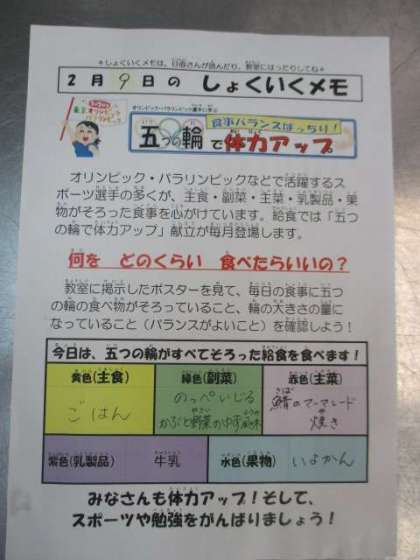 ＊しょくいくメモは、日直さんが読んだり、教室にはったりしてね＊
2月9日の しょくいくメモ
オリンピック・パラリンピック選手に学ぶ
食事バランスばっちり!
五つの輪で体力アップ
オリンピック・パラリンピックなどで活躍するス
ポーツ選手の多くが、主食・副菜・主菜・乳製品・果
物がそろった食事を心がけています。給食では「五つ
の輪で体力アップ」献立が毎月登場します。
何を どのくらい 食べたらいいの？
教室に掲示したポスターを見て、毎日の食事に五つ
の輪の食べ物がそろっていること、輪の大きさの量に
なっていること（バランスがよいこと）を確認しよう！
今日は、五つの輪がすべてそろった給食を食べます！
黄色(主食)
ごはん
緑色(副菜)
のっぺいじる
かぶと野菜のゆず風味
赤色(主菜)
鯖のマーマレード
焼き
紫色(乳製品)
牛乳
水色(果物)
いよかん
みなさんも体力アップ！そして、
スポーツや勉強をがんばりましょう！